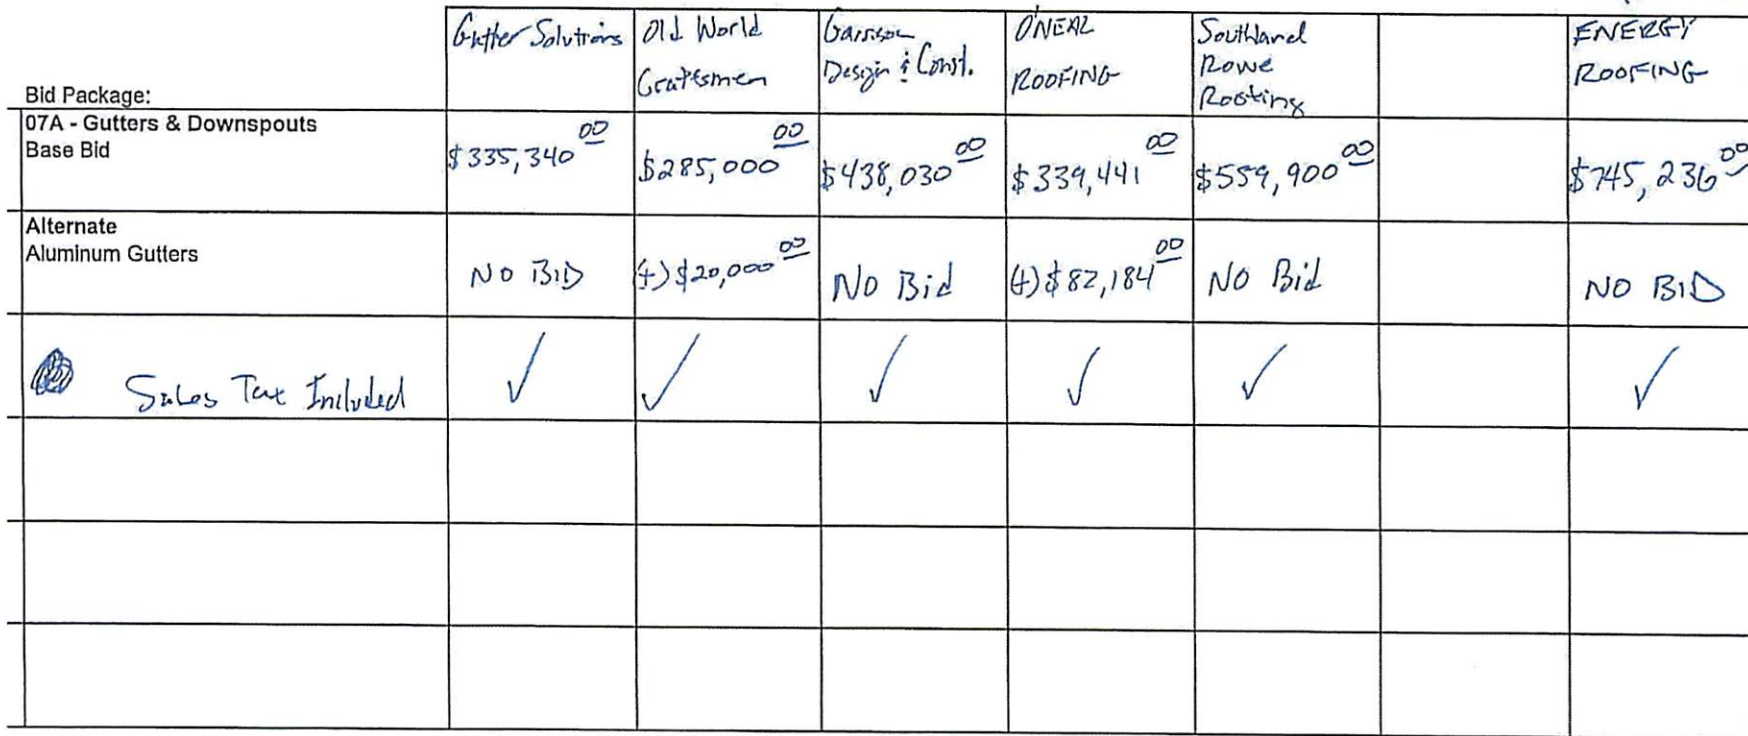 Gutter Solutions
Old World
Craftsmen
Garrison
Design & Const.
O'NEAL
ROOFING
Southland
Rowe
Roofing
ENERGY
ROOFING
Bid Package:
07A - Gutters & Downspouts
Base Bid
$335,340 00
$285,000 00
$438,030 00
$339,441 00
$559,900 00
$745,236 00
Alternate
Aluminum Gutters
NO BID
(+) $20,000 00
NO Bid
(+) $82,184 00
NO Bid
NO BID
Sales Tax Included
✓ ✓ ✓ ✓ ✓ ✓